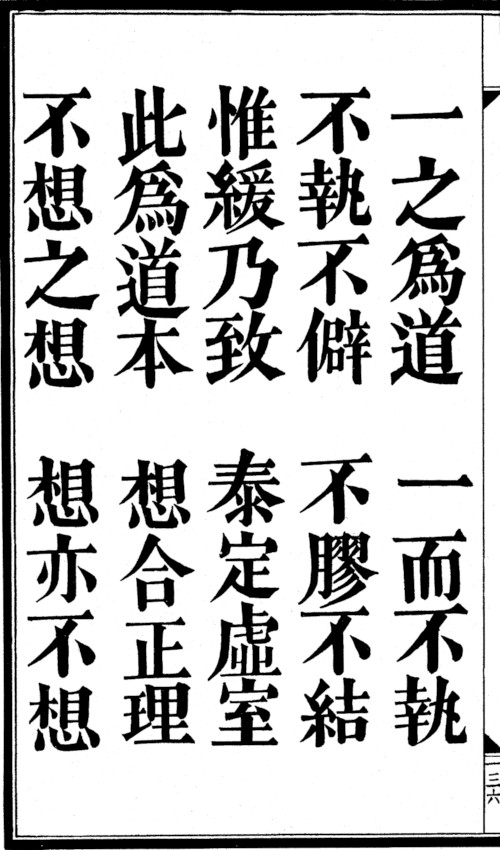 一之爲道　一而不執
不執不僻　不膠不結
惟緩乃致　泰定虛室
此爲道本　想合正理
不想之想　想亦不想
一三六